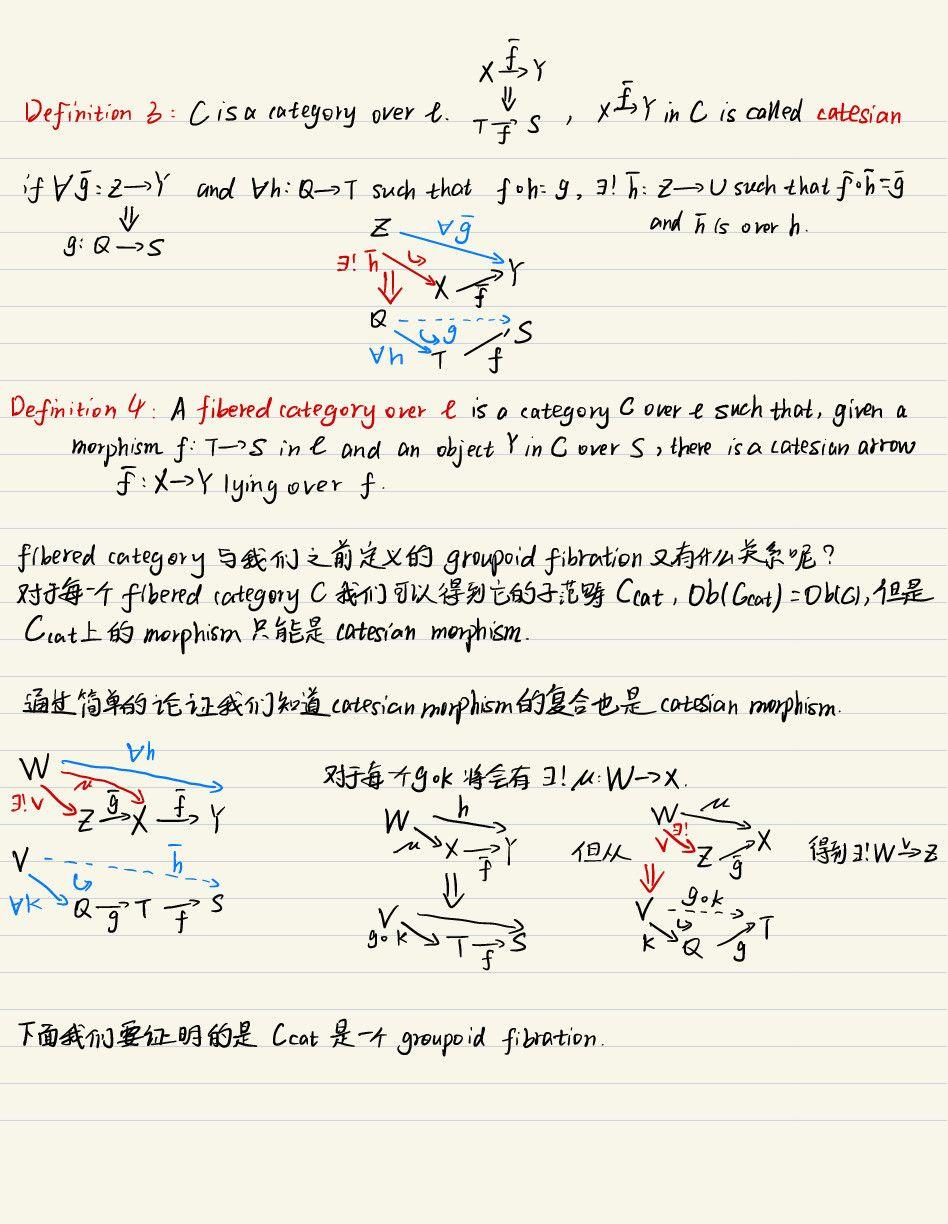 X f̄→ Y
⇓
Definition 3: C is a category over ℓ. T f→ S , X f̄→ Y in C is called catesian
if ∀ ḡ: Z→Y and ∀h: Q→T such that f∘h=g, ∃! h̄: Z→U such that f̄∘h̄=ḡ
⇓
g: Q→S
and h̄ is over h.
Z ∀ḡ
∃! h̄ X f̄ Y
Q g S
∀h T f
Definition 4: A fibered category over ℓ is a category C over ℓ such that, given a
morphism f: T→S in ℓ and an object Y in C over S, there is a catesian arrow
f̄: X→Y lying over f.
fibered category 与我们之前定义的 groupoid fibration 又有什么关系呢?
对于每一个 fibered category C 我们可以得到它的子范畴 Ccat, Ob(Ccat)=Ob(C), 但是
Ccat上的 morphism 只能是 catesian morphism.
通过简单的论证我们知道 catesian morphism 的复合也是 catesian morphism.
W ∀h
∃!ν μ Z ḡ→ X f̄→ Y
V h̄
∀k Q g→ T f→ S
对于每个 g∘k 将会有 ∃! μ: W→X.
W h
μ X f̄→ Y
⇓
V
g∘k T f→ S
但从
W μ
∃! ν Z ḡ X
⇓
V g∘k T
k Q g
得到 ∃! W ν→ Z
下面我们要证明的是 Ccat 是一个 groupoid fibration.